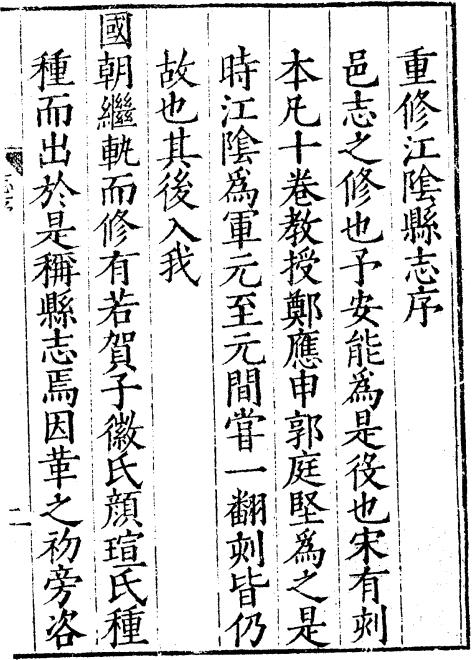 重修江陰縣志序
邑志之修也予安能爲是役也宋有刻
本凡十卷教授鄭應申郭庭堅爲之是
時江陰爲軍元至元間嘗一翻刻皆仍
故也其後入我
國朝繼軌而修有若賀子徽氏顔瑄氏種
種而出於是稱縣志焉因革之初旁咨
志序
二